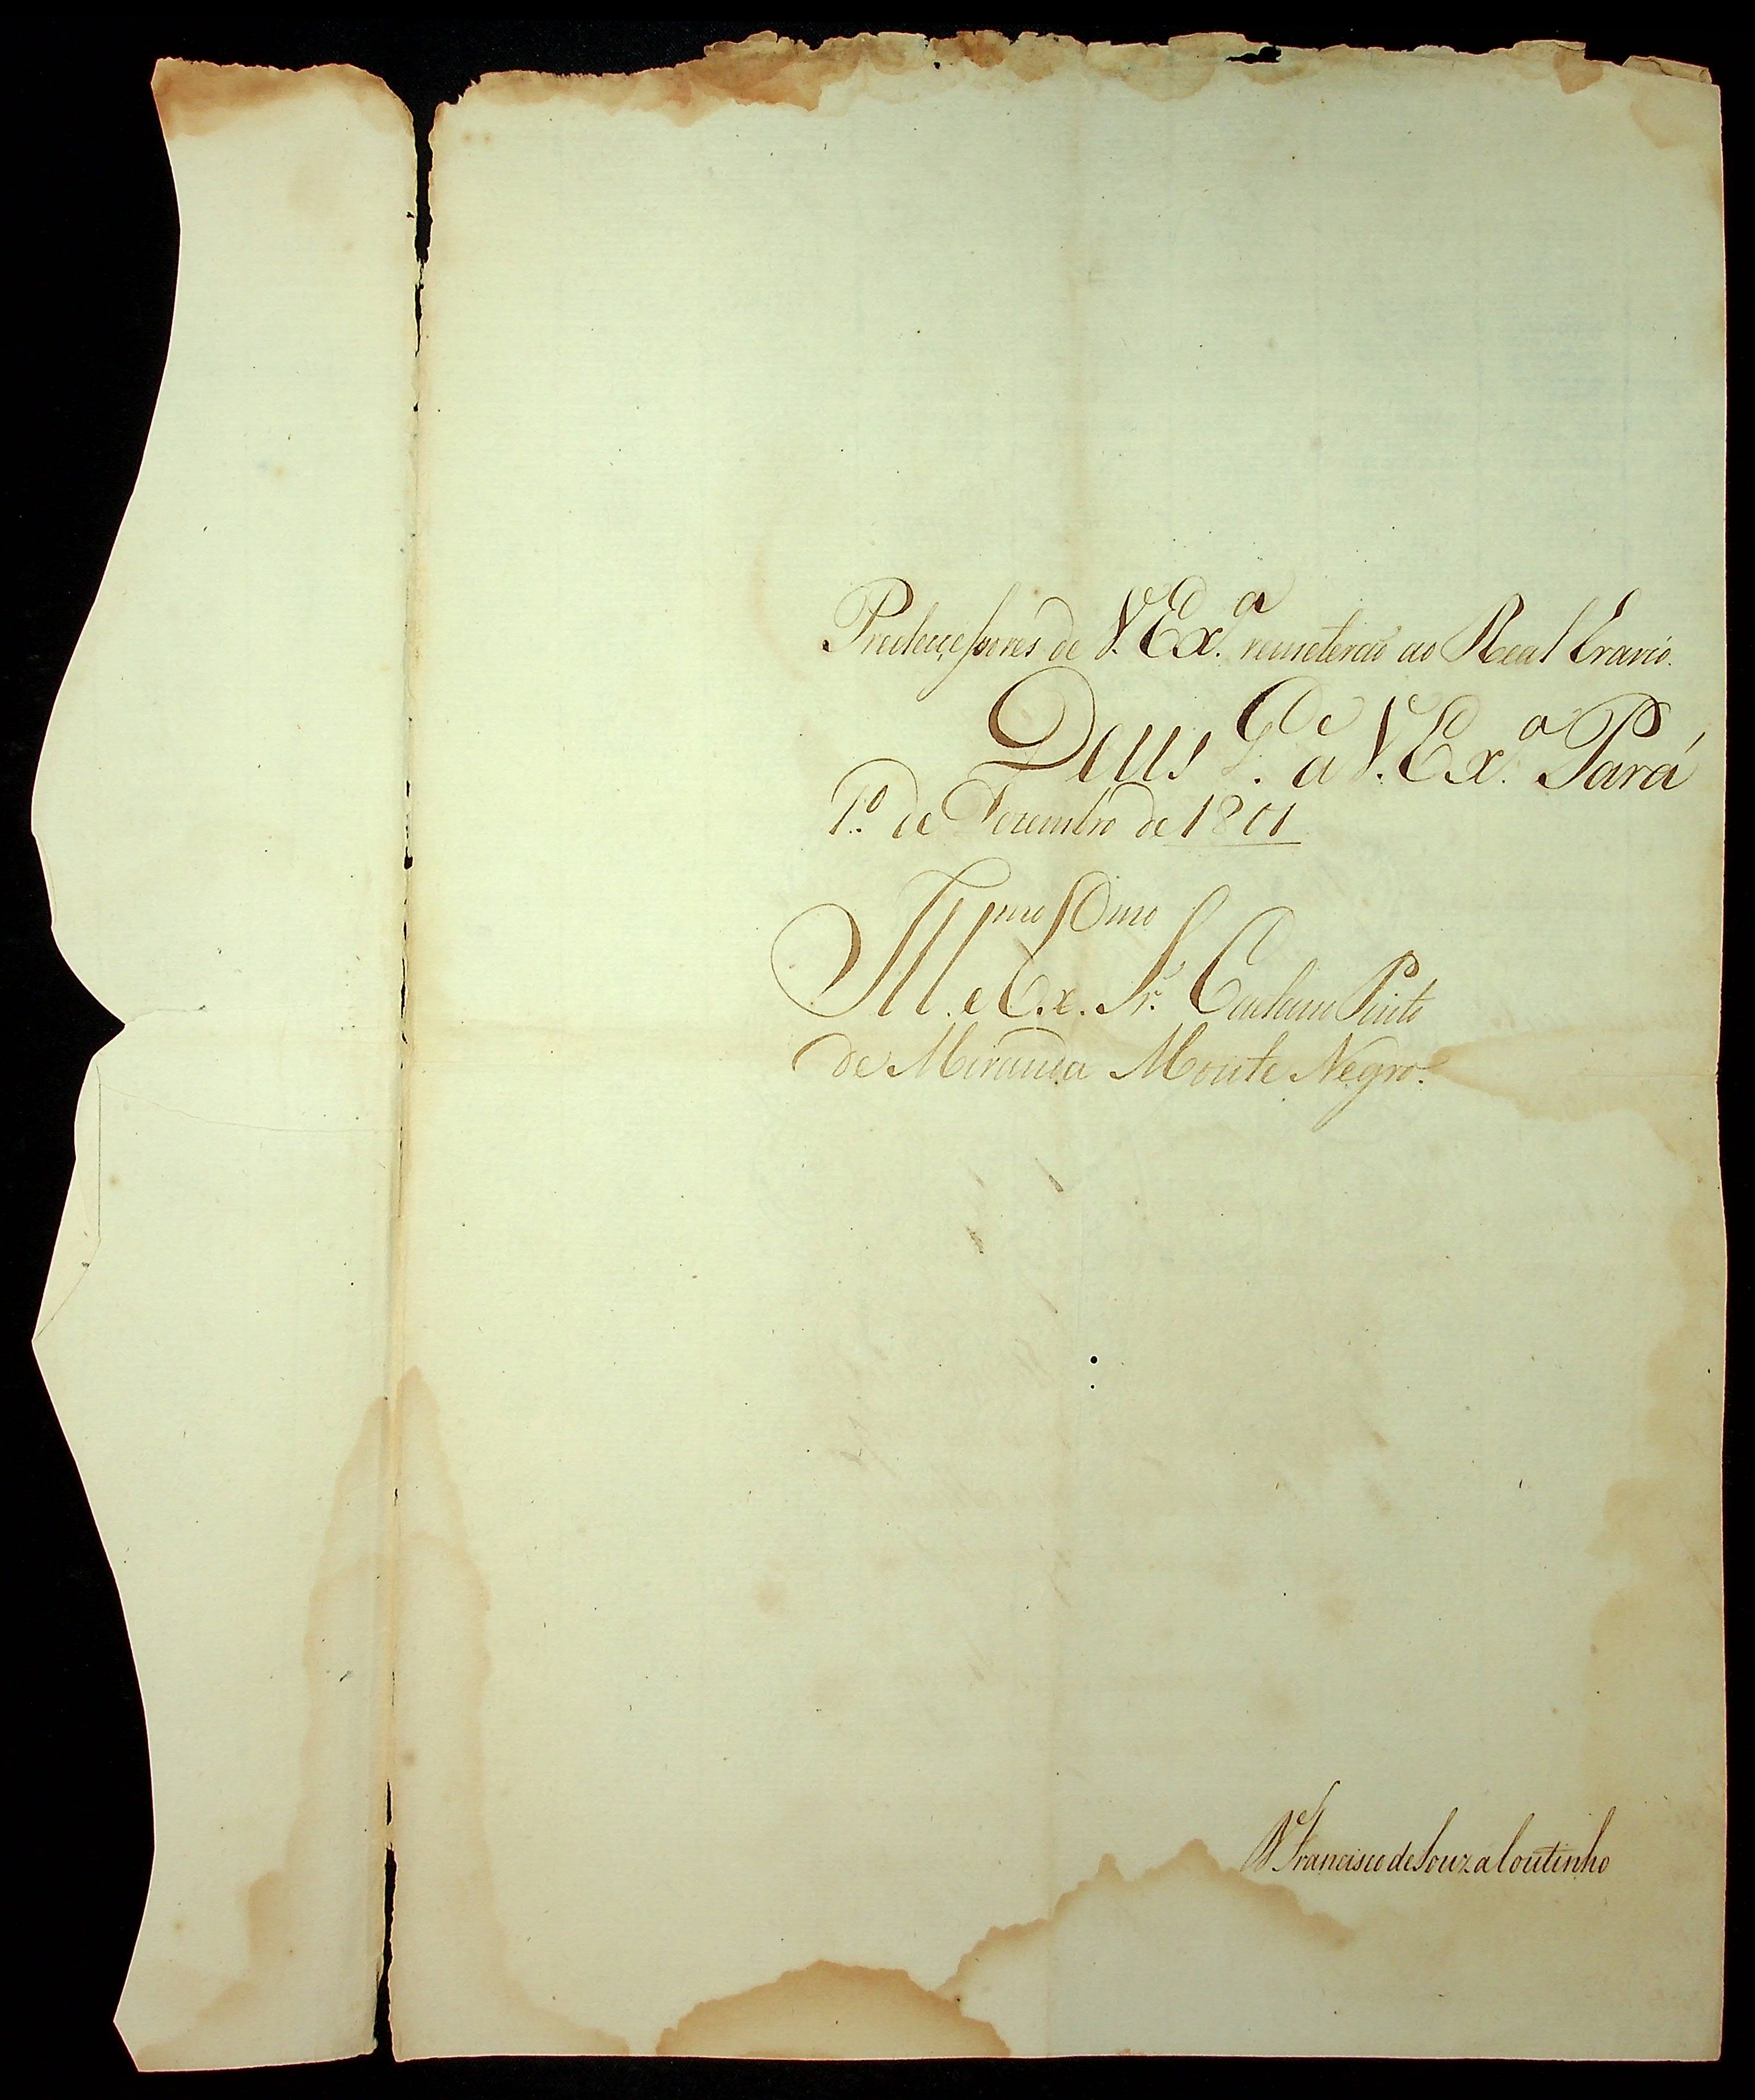 Predecessores de V. Ex.ª remeterão ao Real Erario.
Deus G.de a V. Ex.ª Pará
1.º de Dezembro de 1801
Ill.mo e Ex.mo Sr. Caetano Pinto
de Miranda Monte Negro.
D. Francisco de Souza Coutinho